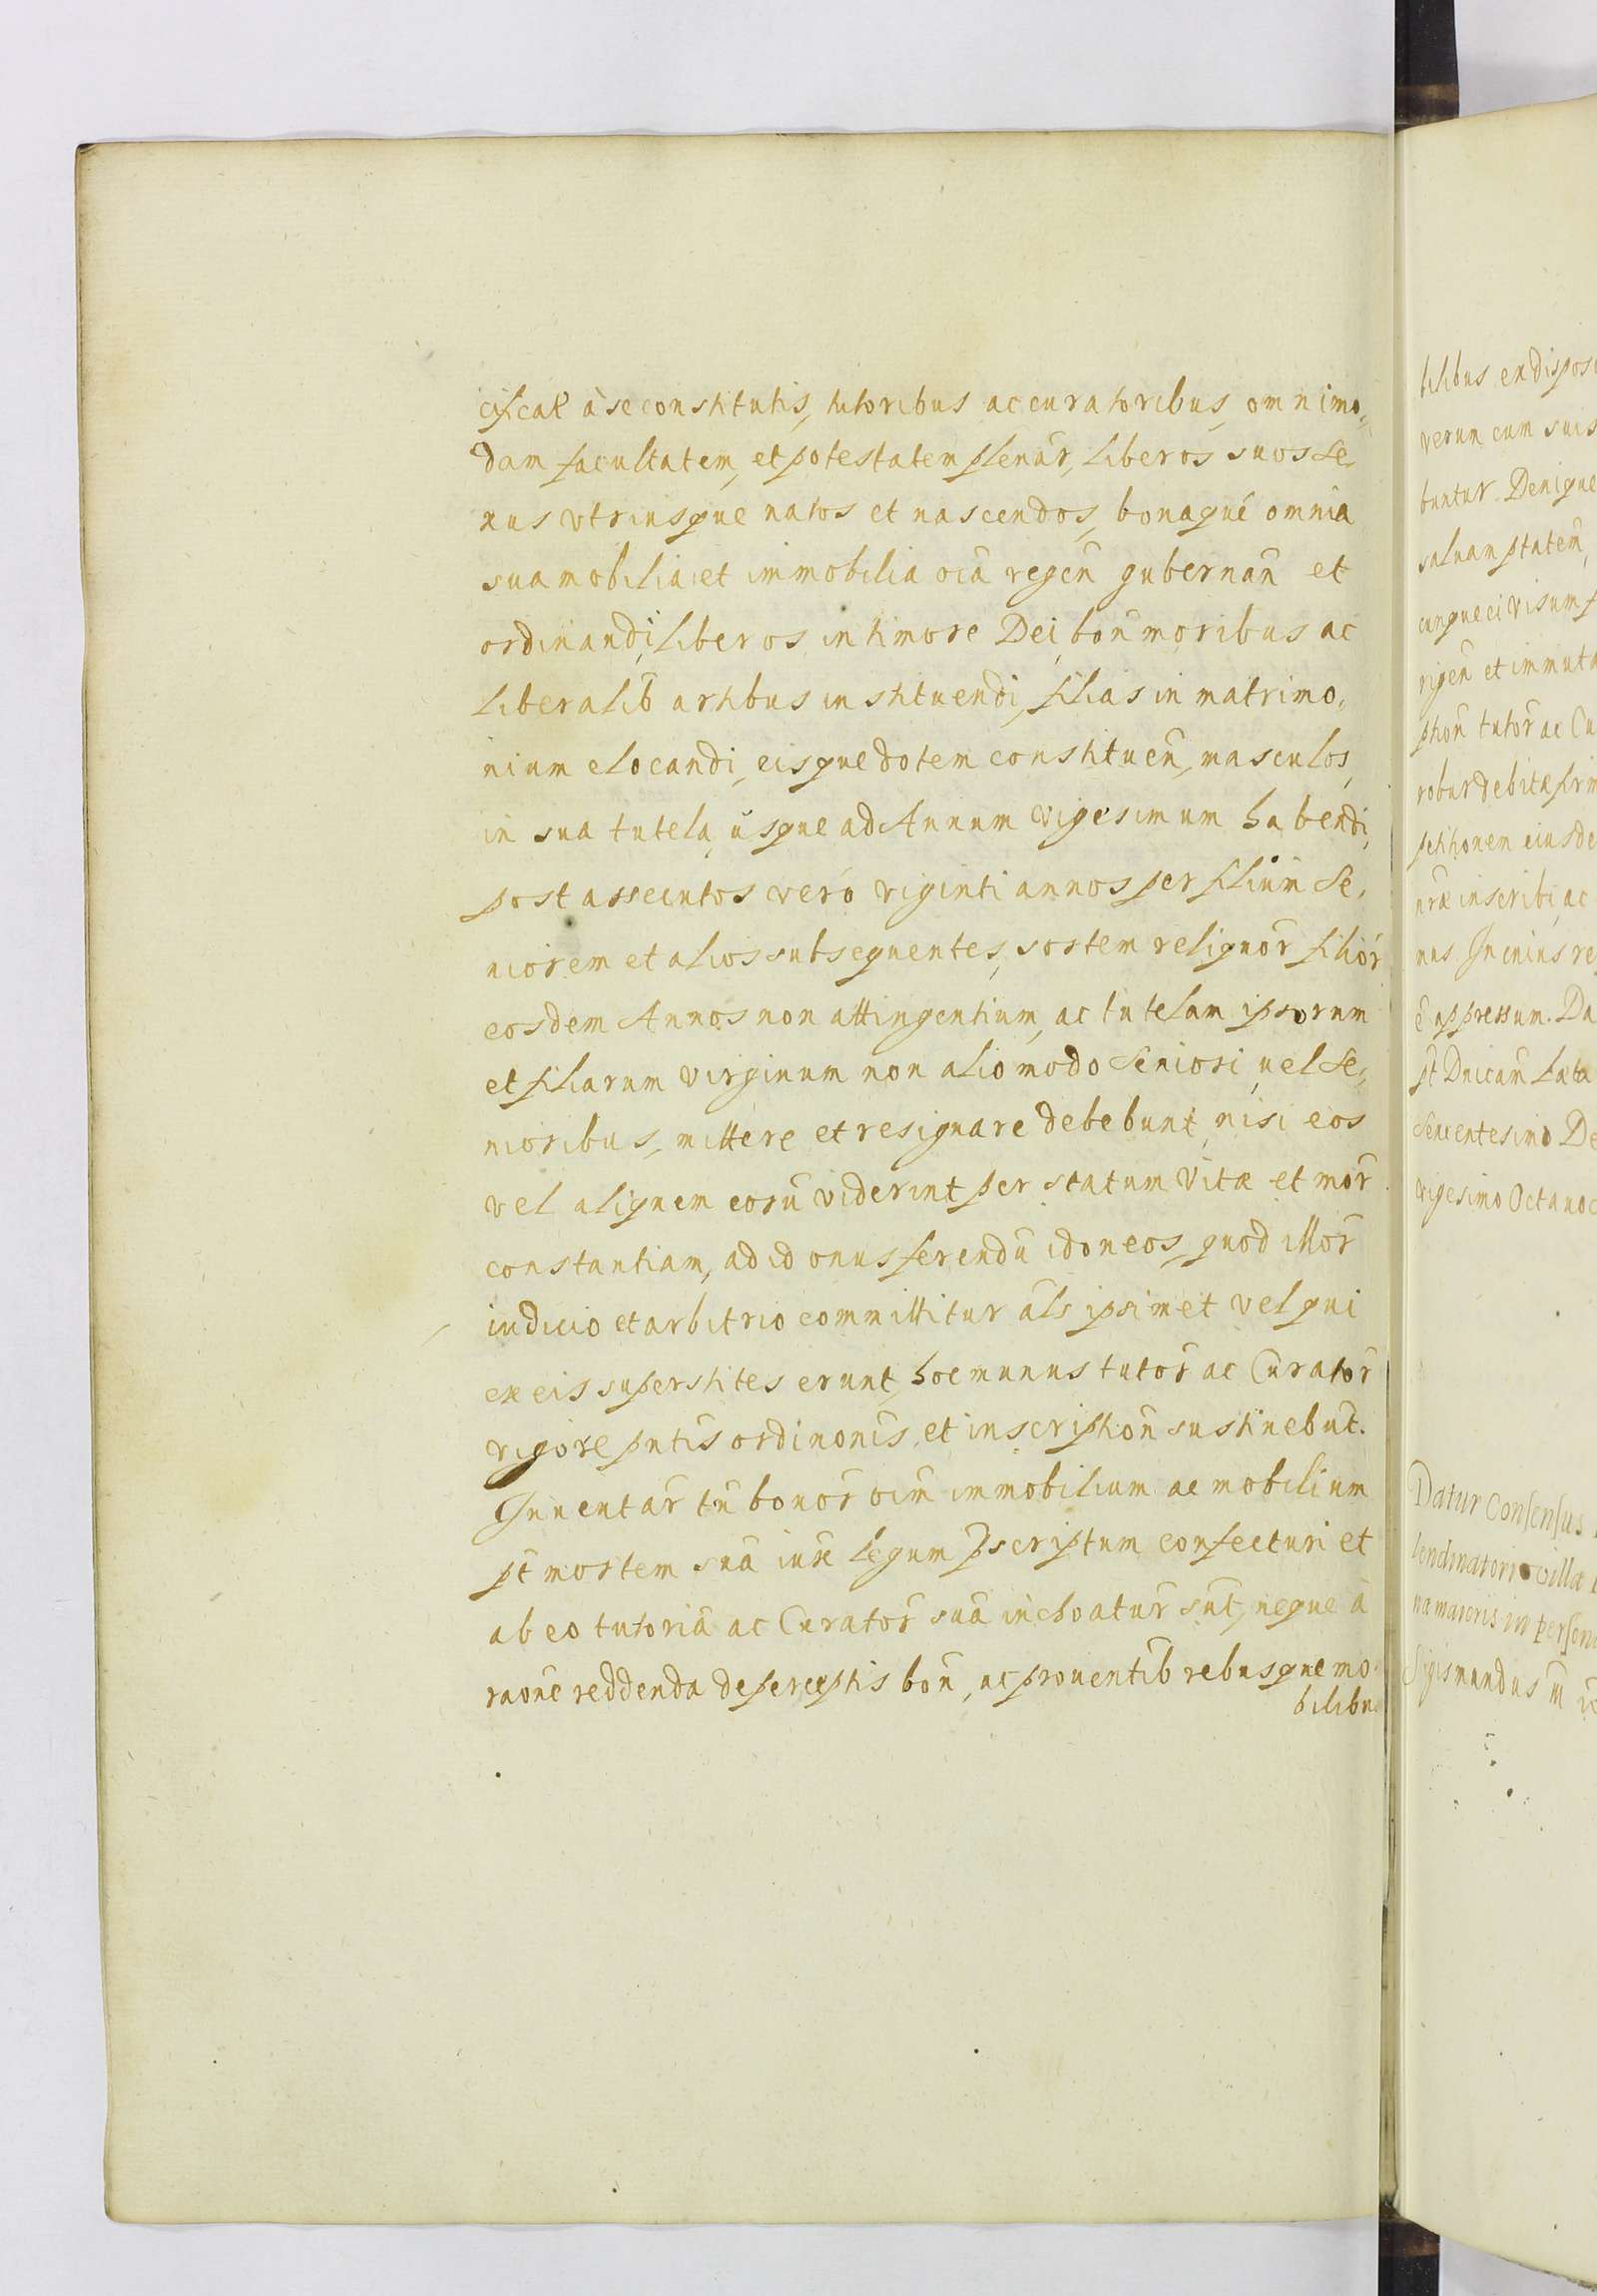 cificat à se constitutis, tutoribus ac curatoribus, omnimo„
dam facultatem, et potestatem plenār, liberos suos Se„
xus vtriusque natos et nascendos, bonaqué omnia
sua mobilia et immobilia oīa regeñ gubernañ et
ordinandi, liberos in timore Dei, boñ moribus ac
liberalib̄ artibus instituendi, filias in matrimo„
nium elocandi, eisque dotem constitueñ, masculos,
in sua tutela, usque ad Annum vigesimum habendi,
post assecutos veró viginti annos per filium Se„
niorem et alios subsequentes, sortem reliquor̄ filiór
eosdem Annos non attingentium, ac tutelam ipsorum
et filiarum virginum non alio modo Seniori, uel Se„
nioribus, mittere et resignare debebunt, nisi eos
vel aliquem eorū viderint per statum Vitæ et mor̄
constantiam, ad id onus ferendū idoneos, quod illor̄
iudicio et arbitrio committitur āls ipsimet vel qui
ex eis superstites erunt, hoc munus tutor̄ ac Curator̄
vigore pn̄tis ordinōnis, et inscriptioñ sustinebūt.
Inuentar̄ tn̄ bonor̄ oīm immobilium ac mobilium
pt̄ mortem suā iure legum p̄scriptum confecturi et
ab eo tutoriā ac Curator̄ suā inchoatur̄ sūt, neque à
raōne reddenda de perceptis boñ, ac prouentib̄ rebusque mo„
bilibus
tilibus ex dispos
verum cum suis
buntur. Denique
saluam ptatem̄
cunque ei visum f
rigen̄ et immuta
ption̄ tutor̄ ac Cu
robur debitæ firm
petitionem eiusde
nr̄æ inscribi, ac
mus. In cuius re
ē appressum. Da
pt̄ Dn̄icam̄ Læta
Sexcentesimo De
vigesimo Octauo
Datur Consensus
lendinatori villæ
na maioris in persona
Sigismundus